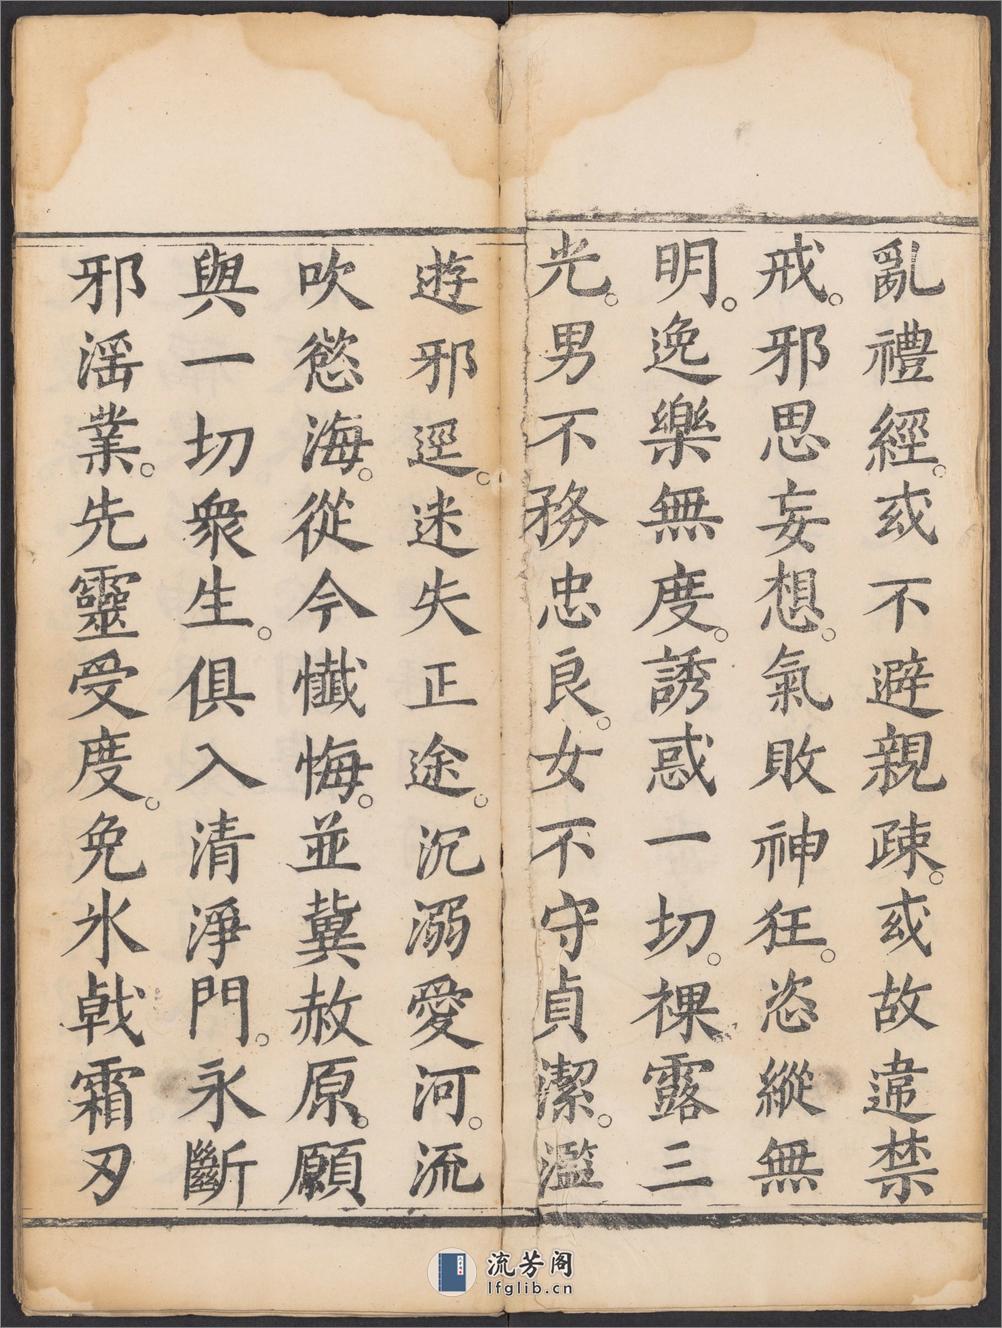 亂禮經。或不避親疎。或故違禁
戒。邪思妄想。氣敗神狂。恣縱無
明。逸樂無度。誘惑一切。裸露三
光。男不務忠良。女不守貞潔。濫
遊邪逕。迷失正途。沉溺愛河。流
吹慾海。從今懺悔。並冀赦原。願
與一切衆生。俱入清淨門。永斷
邪滛業。先靈受度。免氷戟霜刃
流芳阁
lfglib.cn